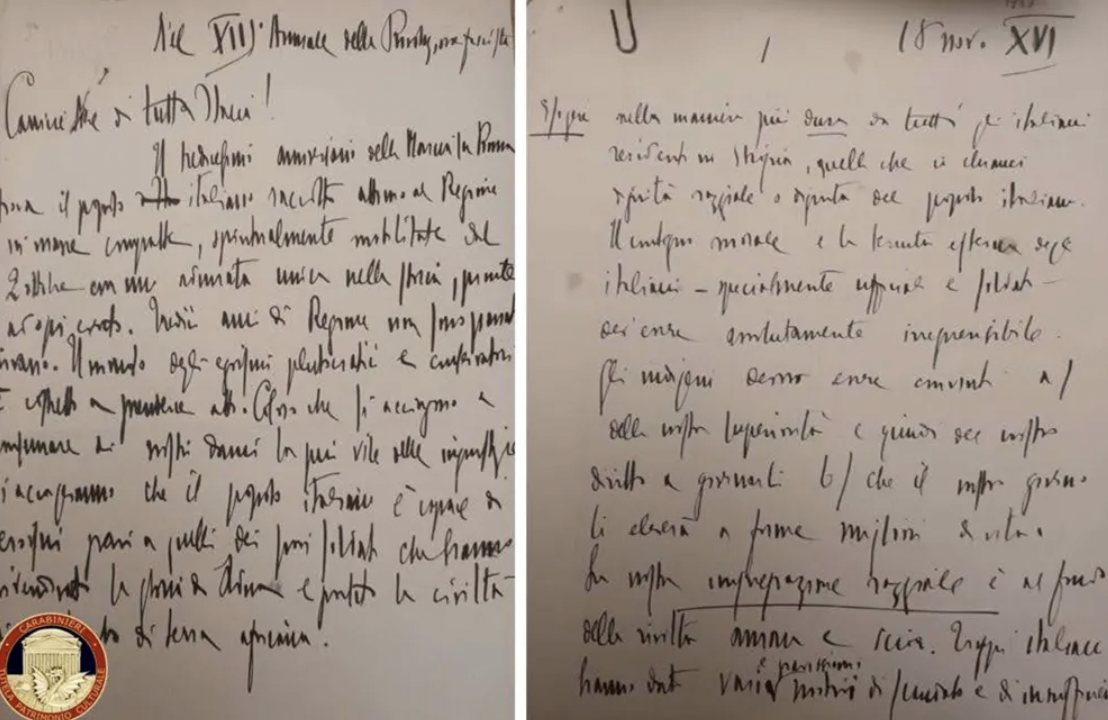 Nel XIII° Annuale della Rivoluzione fascista
Camicie Nere di tutta Italia!
Il tredicesimo anniversario della Marcia su Roma
trova il popolo italiano raccolto attorno al Regime
in masse compatte, spiritualmente mobilitate dal
2 ottobre con una adunata unica nella storia, pronte
ad ogni evento. Tredici anni di Regime non sono passati
invano. Il mondo degli egoismi plutocratici e conservatori
è costretto a prenderne atto. Coloro che si accingono a
consumare ai nostri danni la più vile delle ingiustizie
s'accorgeranno che il popolo italiano è capace di
eroismi pari a quelli dei suoi soldati che hanno
rivendicato la gloria di Adua e portato la civiltà
di terra africana.
CARABINIERI
TUTELA PATRIMONIO CULTURALE
1
18 nov. XVI
Esigere nella maniera più dura da tutti gli italiani
residenti in Etiopia, quella che io chiamai
dignità razziale o dignità del popolo italiano.
Il contegno morale e la tenuta esterna degli
italiani – specialmente ufficiali e soldati –
dev'essere assolutamente irreprensibile.
Gli indigeni devono essere convinti a/
della nostra superiorità e quindi del nostro
diritto a governarli b/ che il nostro governo
li eleverà a forme migliori di vita.
La nostra impreparazione razziale è al fondo
della rivolta amara e Scioa. Troppi italiani
hanno dato vari e parecchi motivi di e di